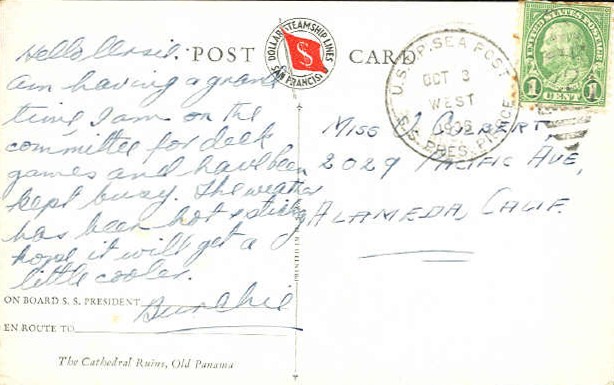 POST CARD
DOLLAR STEAMSHIP LINES
SAN FRANCISCO
S
U.S. OP. SEA POST
OCT 3
WEST
S.S. PRES. PIERCE
UNITED STATES POSTAGE
1 CENT 1
Hello
am having a grand
time, I am on the
committee for deck
games and have been
kept busy. The weather
has been hot & sticky
hope it will get a
little cooler.
Bunchie
MISS J COLBERT
2029 PACIFIC AVE,
ALAMEDA, CALIF.
ON BOARD S. S. PRESIDENT
EN ROUTE TO
The Cathedral Ruins, Old Panama